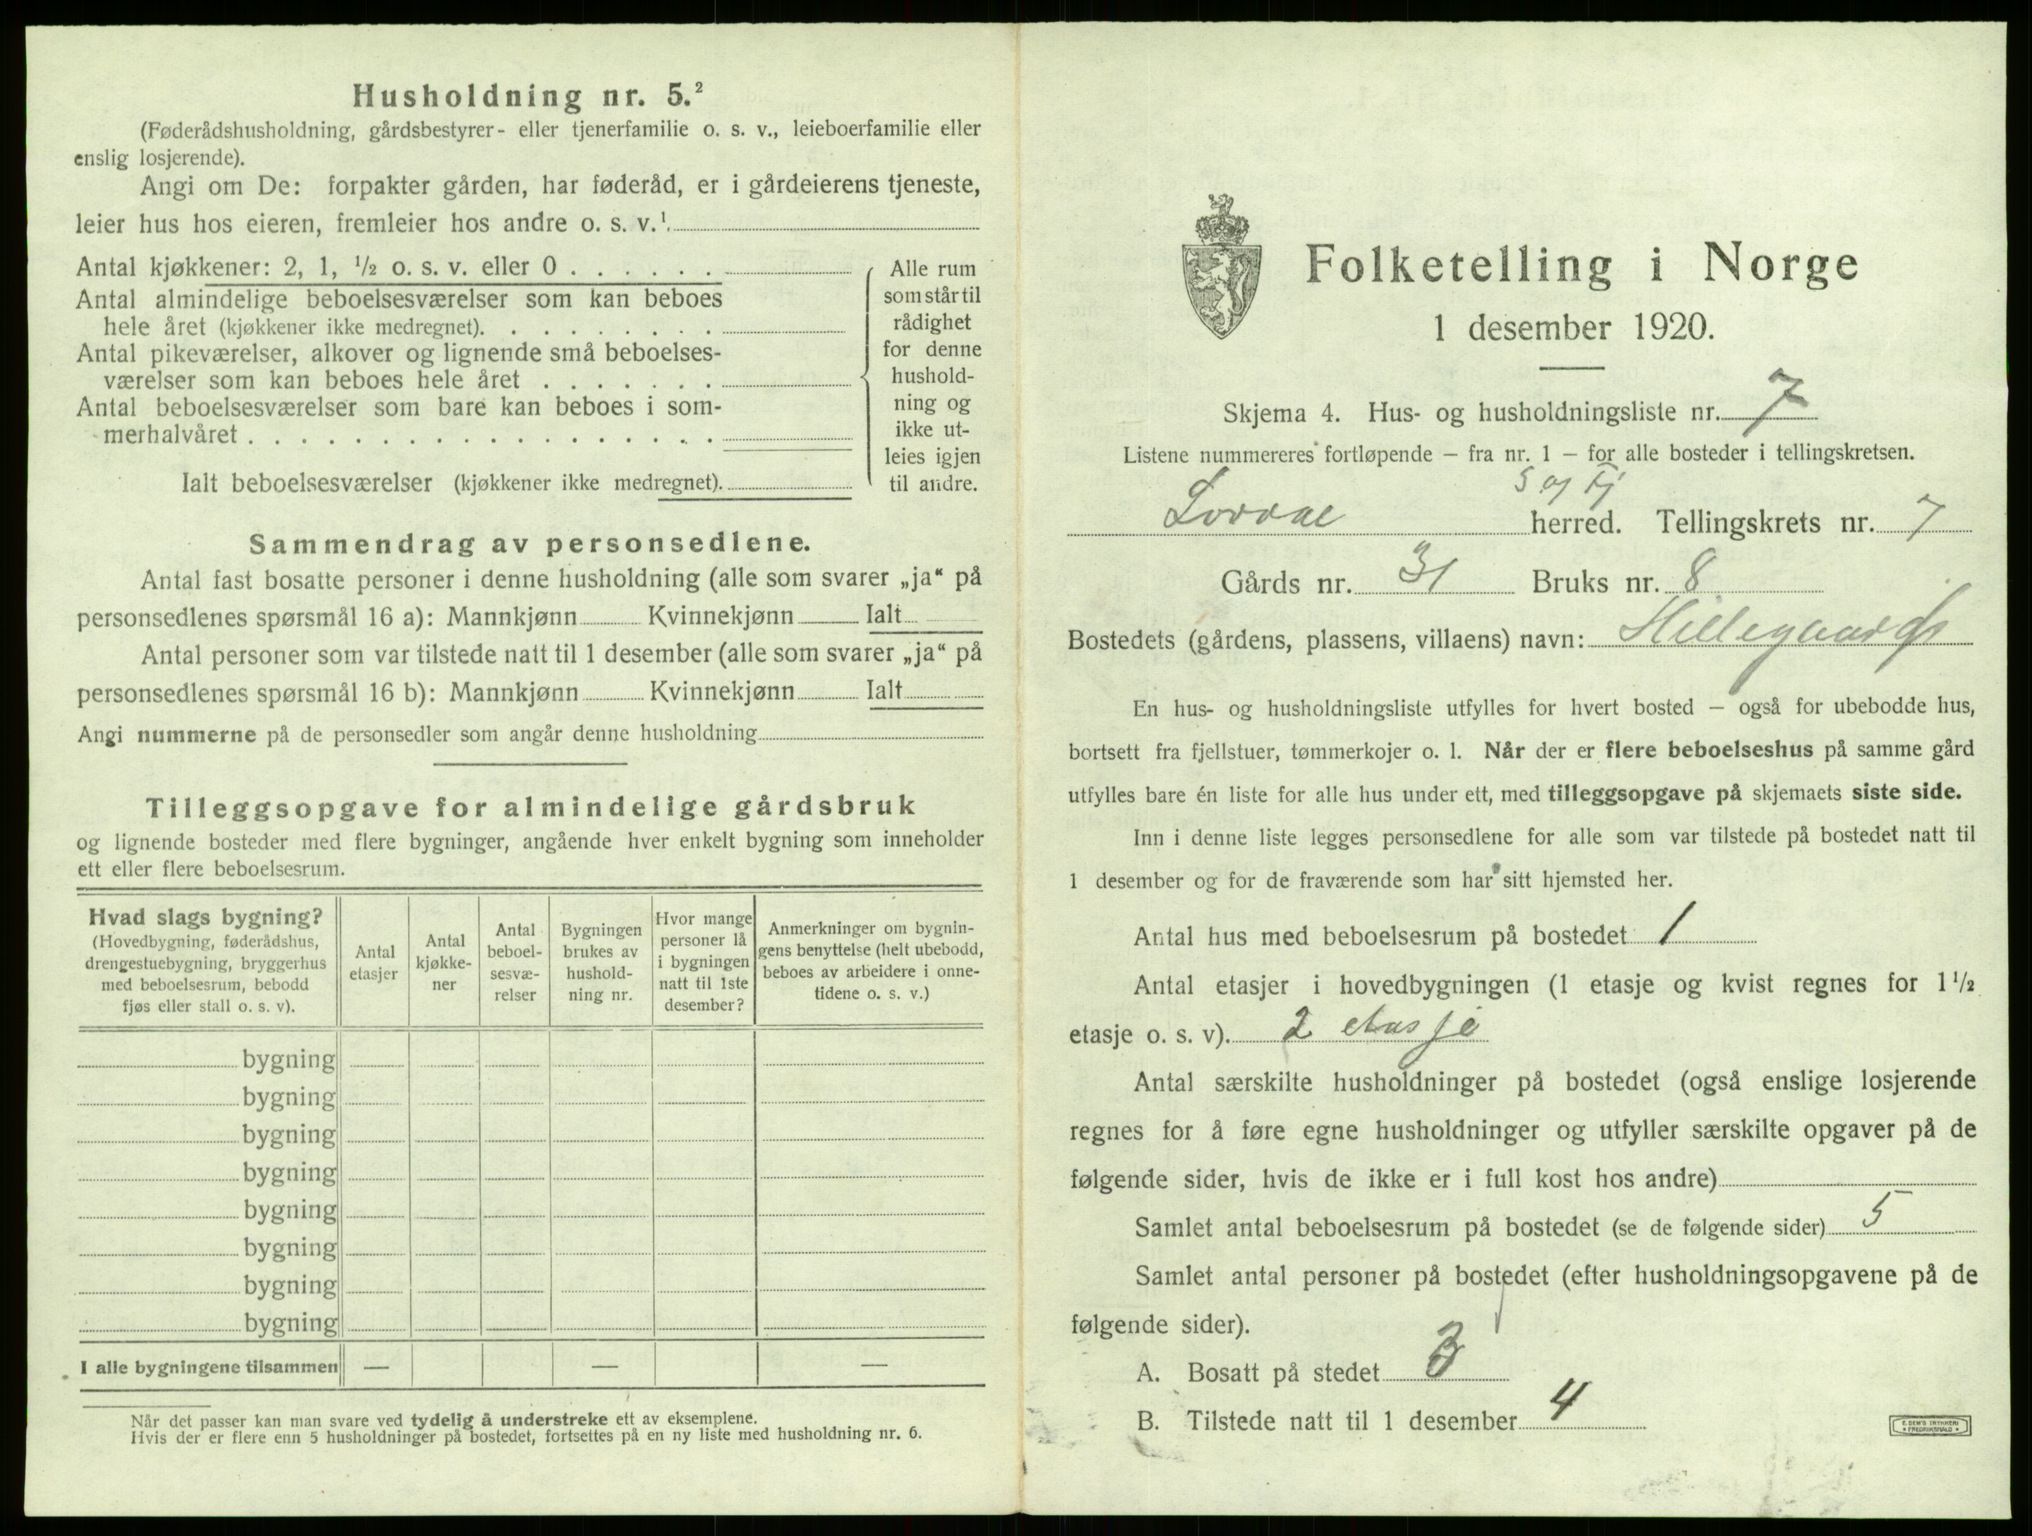 Husholdning nr. 5.²
(Føderådshusholdning, gårdsbestyrer- eller tjenerfamilie o. s. v., leieboerfamilie eller
enslig losjerende).
Angi om De: forpakter gården, har føderåd, er i gårdeierens tjeneste,
leier hus hos eieren, fremleier hos andre o. s. v.¹
Antal kjøkkener: 2, 1, ½ o. s. v. eller 0
Antal almindelige beboelsesværelser som kan beboes
hele året (kjøkkener ikke medregnet).
Antal pikeværelser, alkover og lignende små beboelses-
værelser som kan beboes hele året
Antal beboelsesværelser som bare kan beboes i som-
merhalvåret
Ialt beboelsesværelser (kjøkkener ikke medregnet).
Alle rum
som står til
rådighet
for denne
hushold-
ning og
ikke ut-
leies igjen
til andre.
Sammendrag av personsedlene.
Antal fast bosatte personer i denne husholdning (alle som svarer „ja“ på
personsedlenes spørsmål 16 a): Mannkjønn Kvinnekjønn Ialt
Antal personer som var tilstede natt til 1 desember (alle som svarer „ja“ på
personsedlenes spørsmål 16 b): Mannkjønn Kvinnekjønn Ialt
Angi nummerne på de personsedler som angår denne husholdning
Tilleggsopgave for almindelige gårdsbruk
og lignende bosteder med flere bygninger, angående hver enkelt bygning som inneholder
ett eller flere beboelsesrum.
Hvad slags bygning?
(Hovedbygning, føderådshus,
drengestuebygning, bryggerhus
med beboelsesrum, bebodd
fjøs eller stall o. s. v).
Antal
etasjer
Antal
kjøkke-
ner
Antal
beboel-
sesvæ-
relser
Bygningen
brukes av
hushold-
ning nr.
Hvor mange
personer lå
i bygningen
natt til 1ste
desember?
Anmerkninger om bygnin-
gens benyttelse (helt ubebodd,
beboes av arbeidere i onne-
tidene o. s. v.)
bygning
bygning
bygning
bygning
bygning
bygning
bygning
bygning
I alle bygningene tilsammen — — —
Når det passer kan man svare ved tydelig å understreke ett av eksemplene.
Hvis der er flere enn 5 husholdninger på bostedet, fortsettes på en ny liste med husholdning nr. 6.
Folketelling i Norge
1 desember 1920.
Skjema 4. Hus- og husholdningsliste nr. 7
Listene nummereres fortløpende – fra nr. 1 – for alle bosteder i tellingskretsen.
S og Fj
herred. Tellingskrets nr. 7
Gårds nr. 31 Bruks nr. 8
Bostedets (gårdens, plassens, villaens) navn:
En hus- og husholdningsliste utfylles for hvert bosted – også for ubebodde hus,
bortsett fra fjellstuer, tømmerkojer o. l. Når der er flere beboelseshus på samme gård
utfylles bare én liste for alle hus under ett, med tilleggsopgave på skjemaets siste side.
Inn i denne liste legges personsedlene for alle som var tilstede på bostedet natt til
1 desember og for de fraværende som har sitt hjemsted her.
Antal hus med beboelsesrum på bostedet 1
Antal etasjer i hovedbygningen (1 etasje og kvist regnes for 1½
etasje o. s. v). 2 etasje
Antal særskilte husholdninger på bostedet (også enslige losjerende
regnes for å føre egne husholdninger og utfyller særskilte opgaver på de
følgende sider, hvis de ikke er i full kost hos andre)
Samlet antal beboelsesrum på bostedet (se de følgende sider) 5
Samlet antal personer på bostedet (efter husholdningsopgavene på de
følgende sider).
A. Bosatt på stedet 3
B. Tilstede natt til 1 desember 4